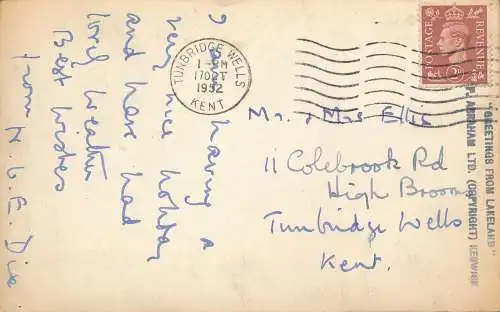 I am having a
very nice holiday
and have had
lovely weather
Best wishes
from H. G. E. Dix
TUNBRIDGE WELLS
1-PM
17 OCT
1952
KENT
POSTAGE
REVENUE
Mr. & Mrs Ellis
11 Colebrook Rd
High Brooms
Tunbridge Wells
Kent.
"GREETINGS FROM LAKELAND"
P. ABRAHAM LTD. (COPYRIGHT) KESWICK